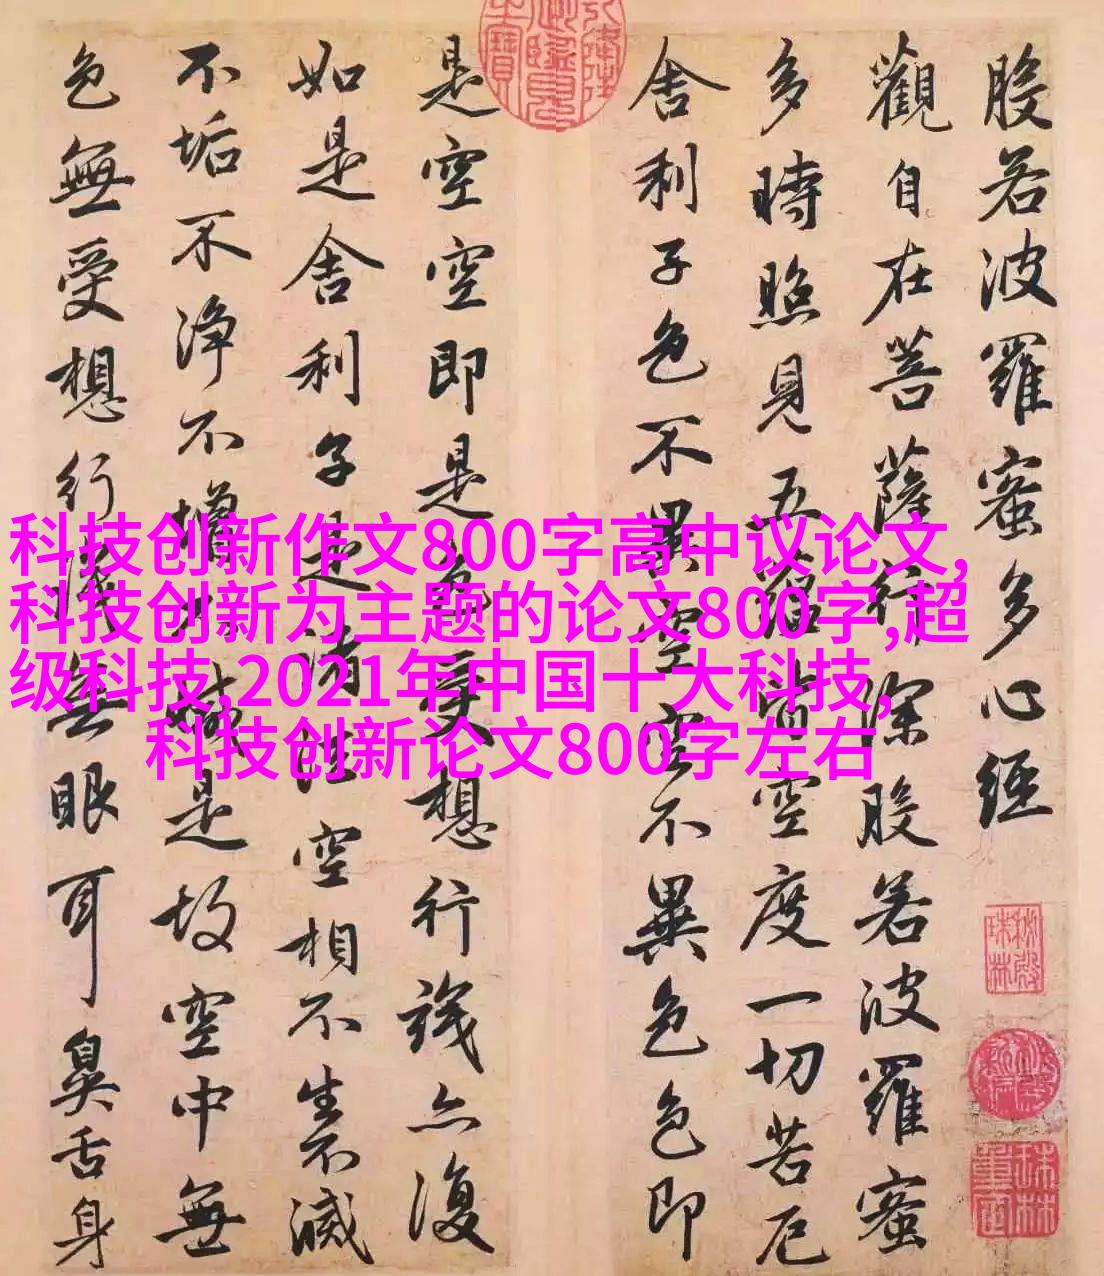 般若波羅蜜多心經
觀自在菩薩行深般若波羅蜜
多時照見五蘊皆空度一切苦厄
舍利子色不異空空不異色色即
是空空即是色受想行識亦復
如是舍利子是諸法空相不生不滅
不垢不淨不增不減是故空中無
色無受想行識無眼耳鼻舌身
科技创新作文800字高中议论文,
科技创新为主题的论文800字,超
级科技,2021年中国十大科技,
科技创新论文800字左右